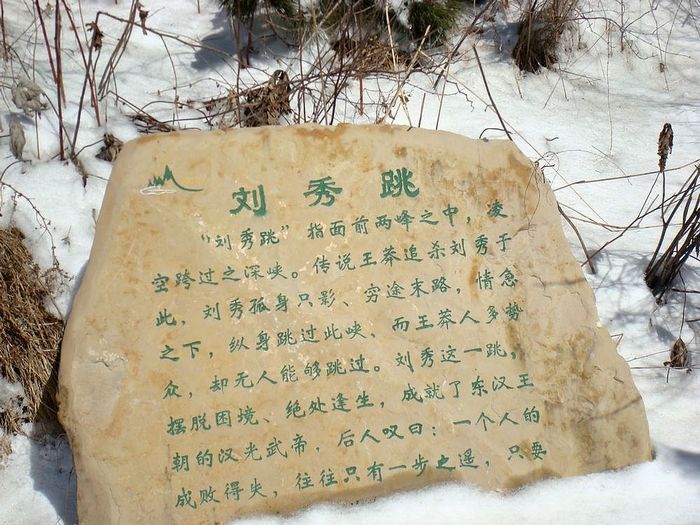 刘秀跳
“刘秀跳”指面前两峰之中，凌
空跨过之深峡。传说王莽追杀刘秀于
此，刘秀孤身只影、穷途末路，情急
之下，纵身跳过此峡，而王莽人多势
众，却无人能够跳过。刘秀这一跳，
摆脱困境、绝处逢生，成就了东汉王
朝的汉光武帝，后人叹曰：一个人的
成败得失，往往只有一步之遥，只要